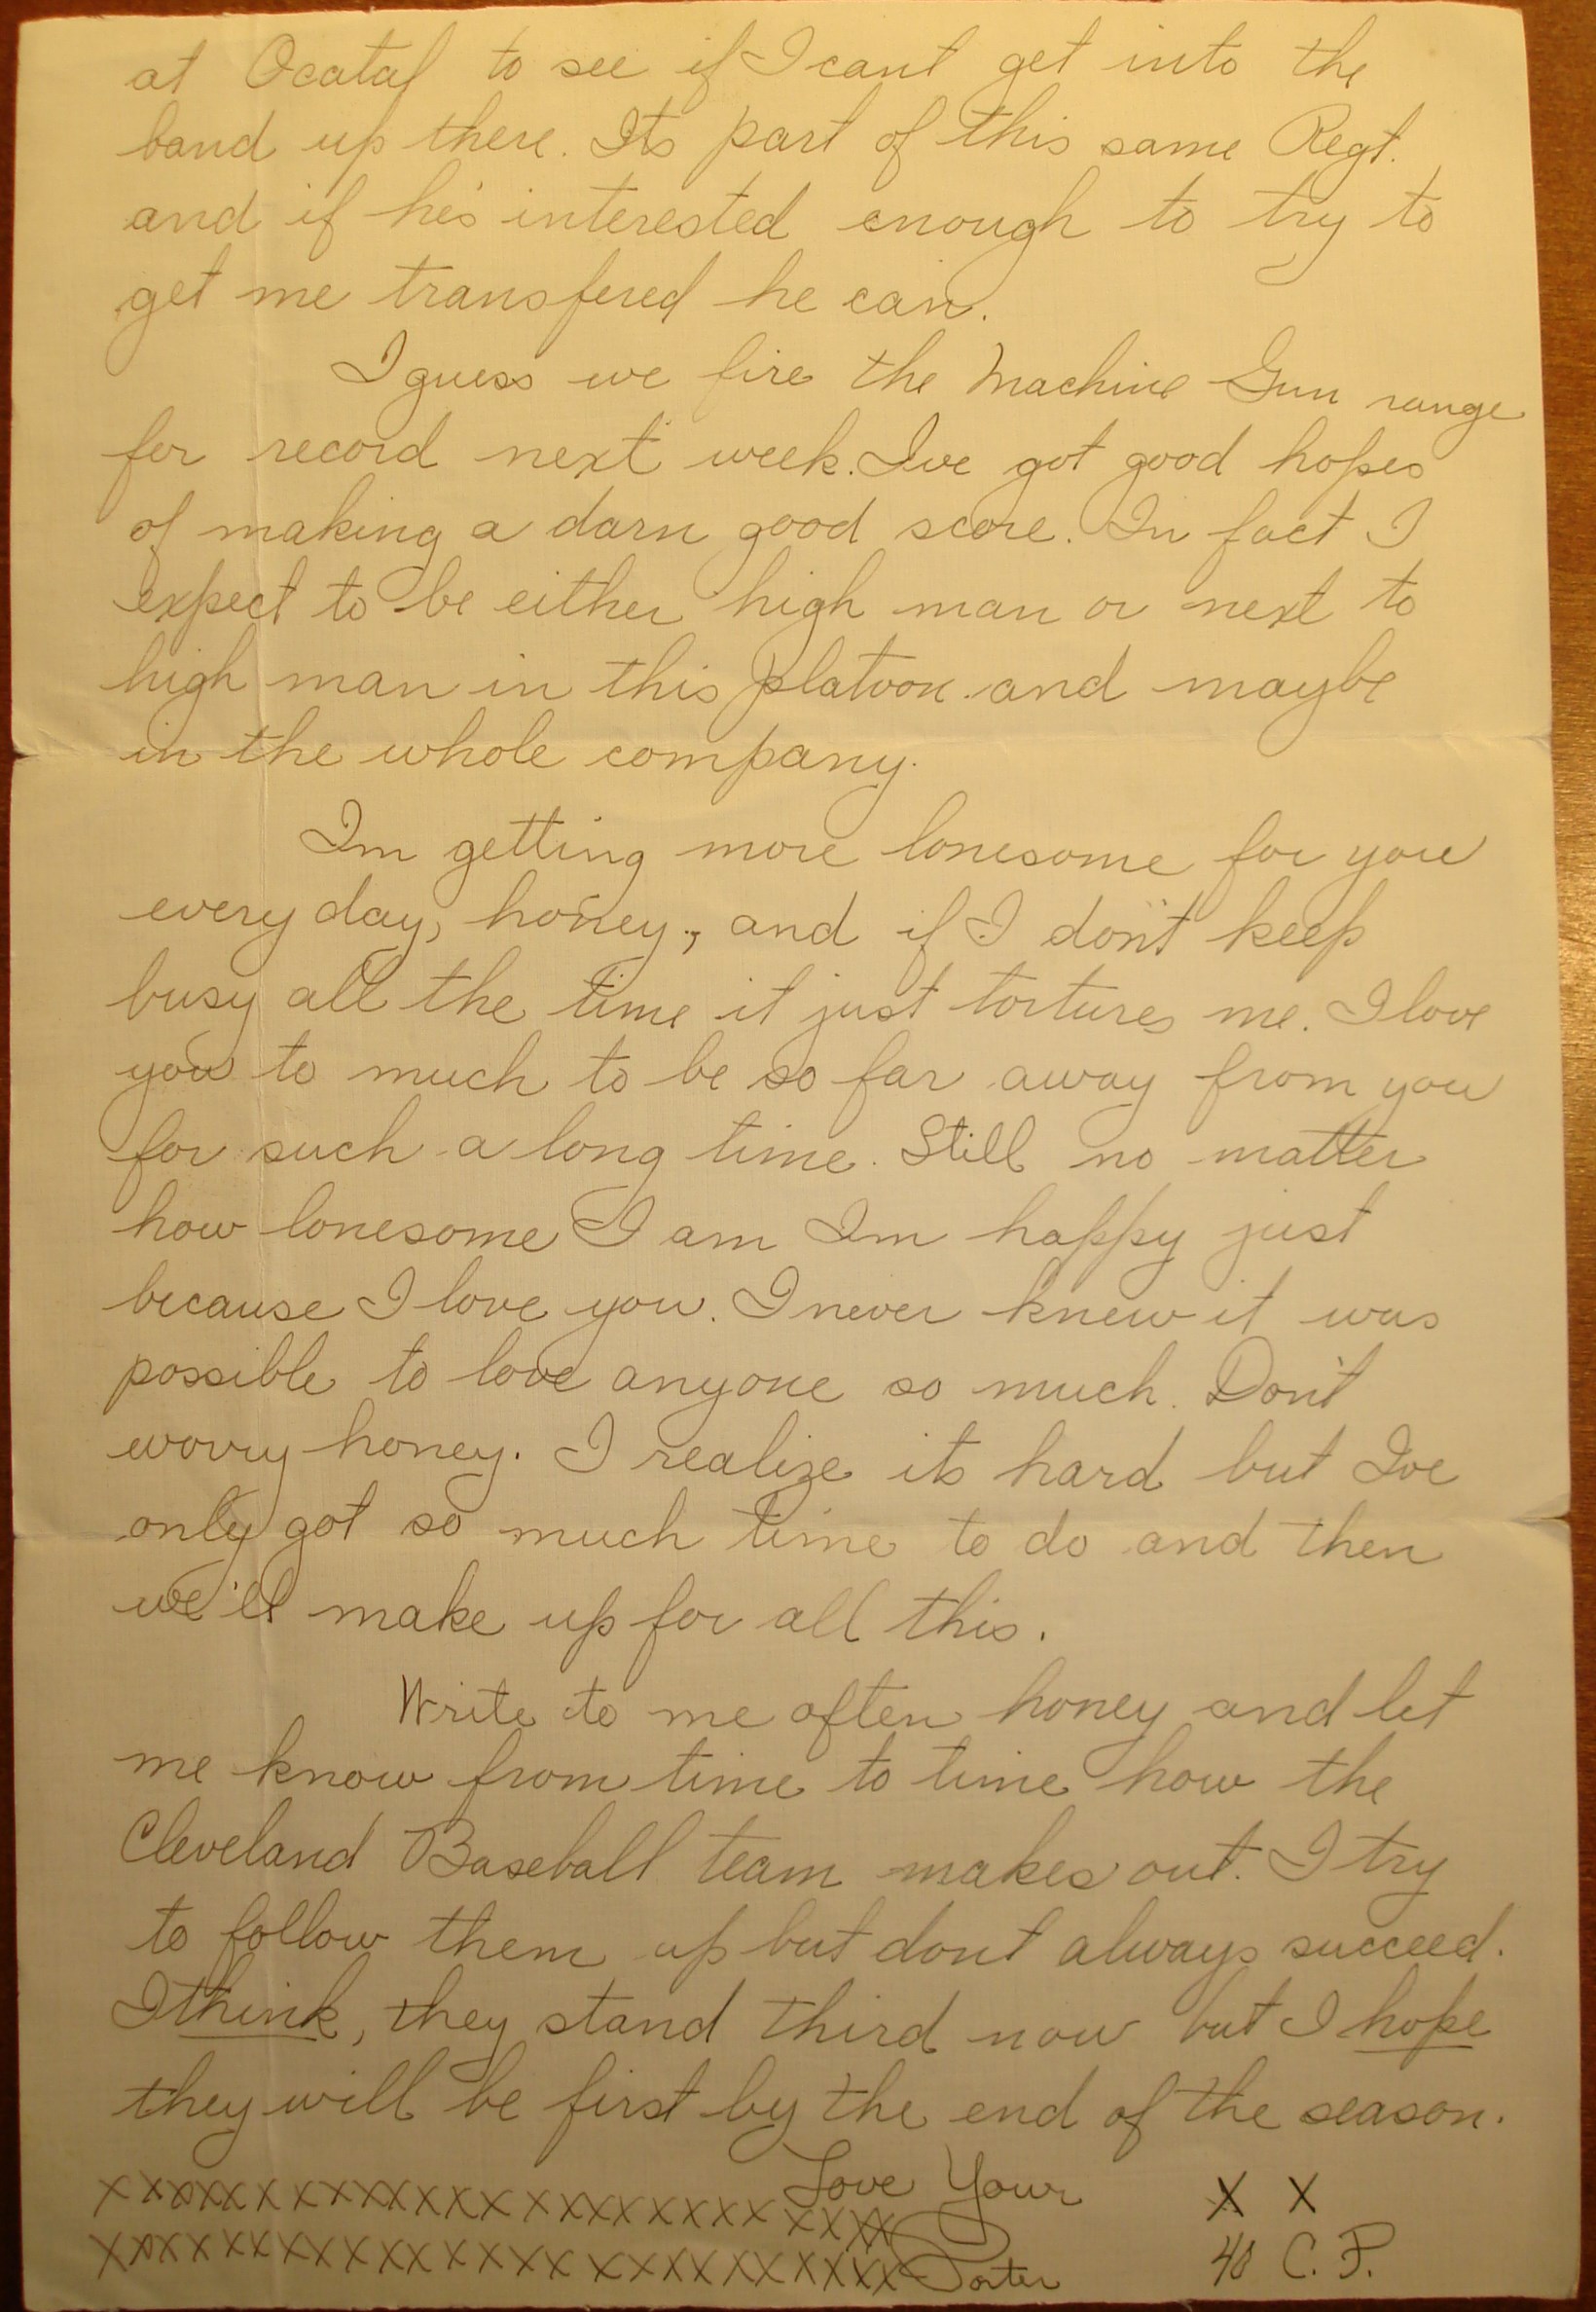 at Ocatal to see if I cant get into the
band up there. Its part of this same Regt.
and if he's interested enough to try to
get me transfered he can.
I guess we fire the Machine Gun range
for record next week. Ive got good hopes
of making a darn good score. In fact I
expect to be either high man or next to
high man in this platoon and maybe
in the whole company.
Im getting more lonesome for you
every day, honey, and if I don't keep
busy all the time it just tortures me. I love
you to much to be so far away from you
for such a long time. Still no matter
how lonesome I am Im happy just
because I love you. I never knew it was
possible to love anyone so much. Don't
worry honey. I realize its hard but Ive
only got so much time to do and then
we'll make up for all this.
Write to me often honey and let
me know from time to time how the
Cleveland Baseball team makes out. I try
to follow them up but dont always succeed.
I think, they stand third now but I hope
they will be first by the end of the season.
Love Your
x x
Porter